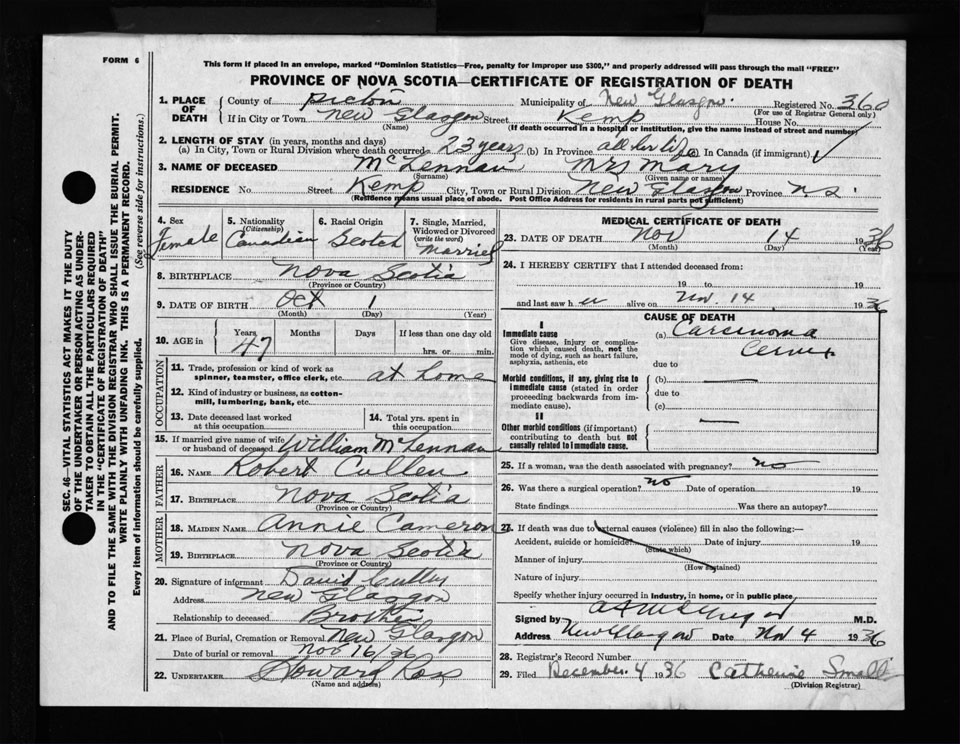 FORM 6
This form if placed in an envelope, marked "Dominion Statistics—Free, penalty for improper use $300," and properly addressed will pass through the mail "FREE"
PROVINCE OF NOVA SCOTIA—CERTIFICATE OF REGISTRATION OF DEATH
1. PLACE OF DEATH County of Pictou Municipality of New Glasgow. Registered No. 360
(For use of Registrar General only)
If in City or Town New Glasgow Street Kemp House No.
(Name) (If death occurred in a hospital or institution, give the name instead of street and number)
2. LENGTH OF STAY (in years, months and days)
(a) In City, Town or Rural Division where death occurred 23 years (b) In Province all her life (c) In Canada (if immigrant)
3. NAME OF DECEASED McLennan Mrs Mary
(Surname) (Given name or names)
RESIDENCE No. Street Kemp City, Town or Rural Division New Glasgow Province N.S.
(Residence means usual place of abode. Post Office Address for residents in rural parts not sufficient)
4. Sex Female
5. Nationality (Citizenship) Canadian
6. Racial Origin Scotch
7. Single, Married, Widowed or Divorced (write the word) Married
8. BIRTHPLACE Nova Scotia
(Province or Country)
9. DATE OF BIRTH Oct 1
(Month) (Day) (Year)
10. AGE in Years 47 Months Days If less than one day old hrs. or min.
OCCUPATION
11. Trade, profession or kind of work as spinner, teamster, office clerk, etc. at home
12. Kind of industry or business, as cotton-mill, lumbering, bank, etc.
13. Date deceased last worked at this occupation
14. Total yrs. spent in this occupation
15. If married give name of wife or husband of deceased William McLennan
FATHER
16. NAME Robert Cullen
17. BIRTHPLACE Nova Scotia
(Province or Country)
MOTHER
18. MAIDEN NAME Annie Cameron
19. BIRTHPLACE Nova Scotia
(Province or Country)
20. Signature of informant David
Address New Glasgow
Relationship to deceased Brother
21. Place of Burial, Cremation or Removal New Glasgow
Date of burial or removal Nov 16/36
22. UNDERTAKER Howard Ross
(Name and address)
MEDICAL CERTIFICATE OF DEATH
23. DATE OF DEATH Nov 14 1936
(Month) (Day) (Year)
24. I HEREBY CERTIFY that I attended deceased from:
19 to 19
and last saw her alive on Nov. 14 1936
CAUSE OF DEATH
I
Immediate cause (a) Carcinoma
Give disease, injury or complication which caused death, not the mode of dying, such as heart failure, asphyxia, asthenia, etc Cervix
due to
Morbid conditions, if any, giving rise to immediate cause (stated in order proceeding backwards from immediate cause). (b)
due to
(c)
II
Other morbid conditions (if important) contributing to death but not causally related to immediate cause.
25. If a woman, was the death associated with pregnancy? no
26. Was there a surgical operation? no Date of operation 19
State findings Was there an autopsy?
27. If death was due to external causes (violence) fill in also the following:—
Accident, suicide or homicide Date of injury 19
(State which)
Manner of injury
(How sustained)
Nature of injury
Specify whether injury occurred in industry, in home, or in public place
Signed by M.D.
Address New Glasgow Date Nov 4 1936
28. Registrar's Record Number
29. Filed December 4 1936 Catherine Small
(Division Registrar)
SEC. 46—VITAL STATISTICS ACT MAKES IT THE DUTY
OF THE UNDERTAKER OR PERSON ACTING AS UNDER-
TAKER TO OBTAIN ALL THE PARTICULARS REQUIRED
IN THE "CERTIFICATE OF REGISTRATION OF DEATH"
AND TO FILE THE SAME WITH THE DIVISION REGISTRAR WHO SHALL ISSUE THE BURIAL PERMIT.
WRITE PLAINLY WITH UNFADING INK. THIS IS A PERMANENT RECORD.
Every item of information should be carefully supplied. (See reverse side for instructions.)